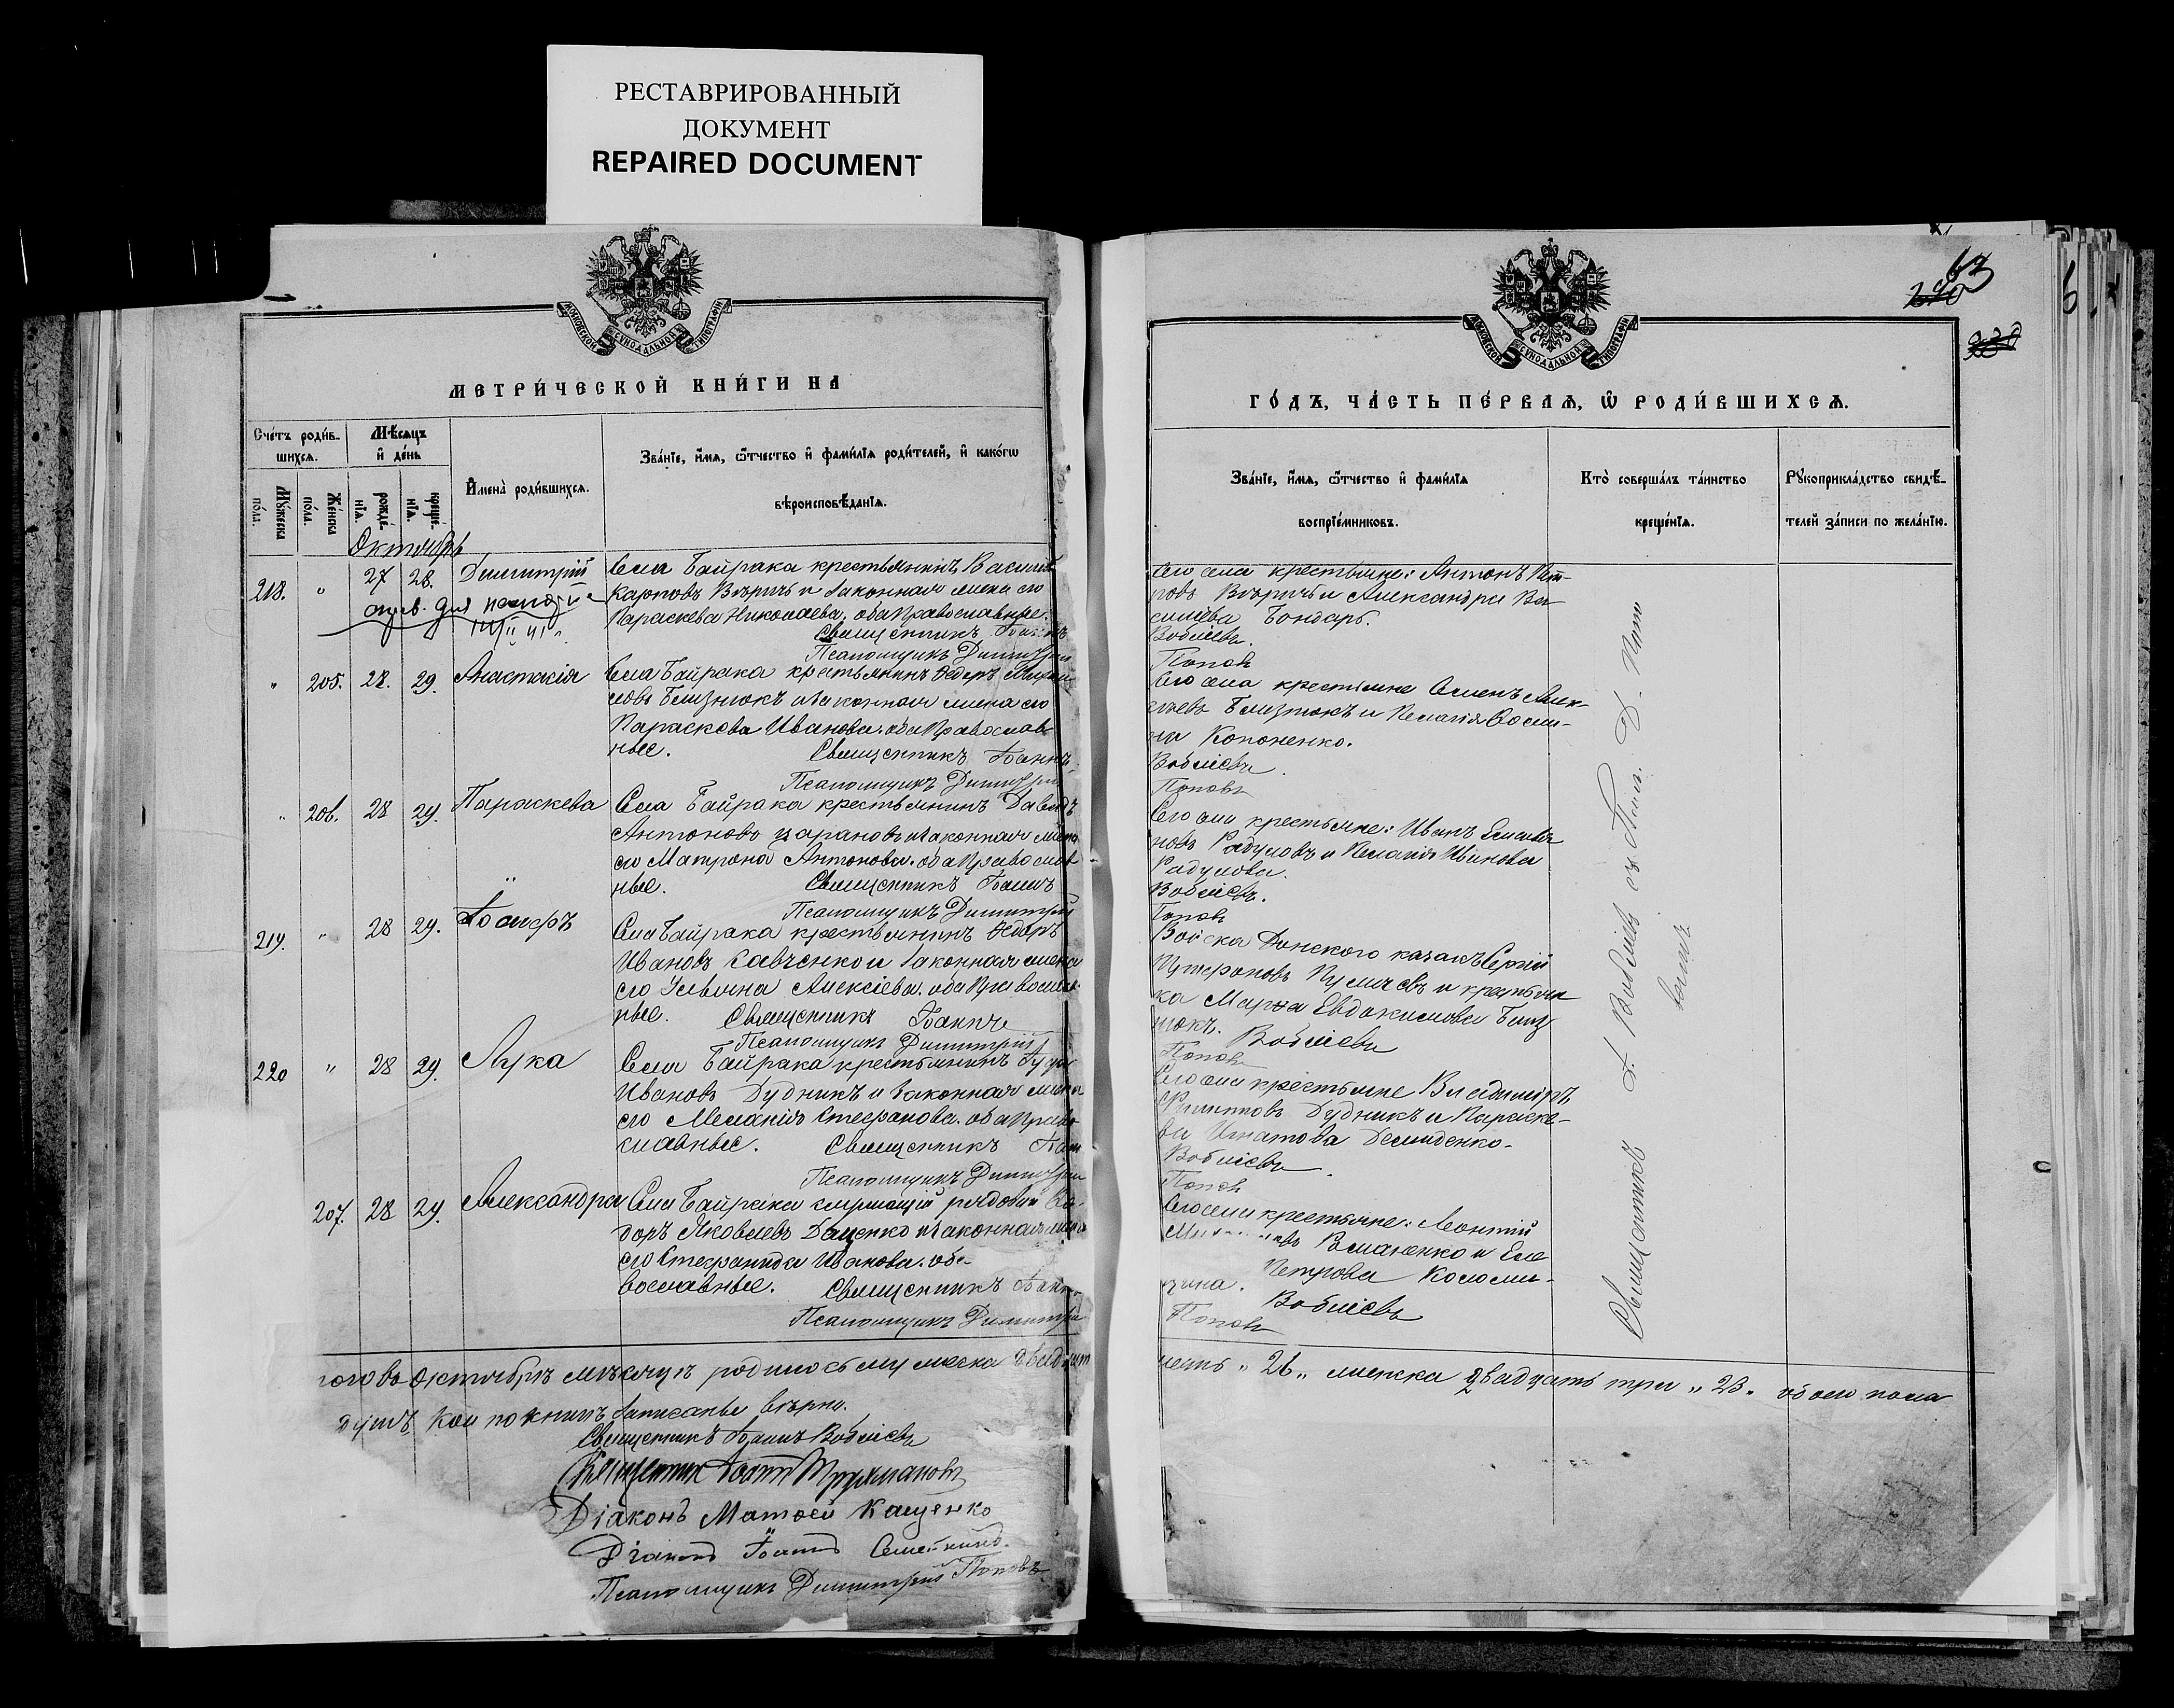 РЕСТАВРИРОВАННЫЙ
ДОКУМЕНТ
REPAIRED DOCUMENT
МОСКОВСКОЙ СѴНОДАЛЬНОЙ ТИПОГРАФІИ
МЕТРИ́ЧЕСКОЙ КНИ́ГИ НА
Сче́тъ роди́в-
шихся.
Мѣ́сяцъ
и҆ де́нь
Мꙋ́жеска
по́ла.
Же́нска
по́ла.
рожде́-
нїѧ.
креще́-
нїѧ.
И҆мена̀ роди́вшихся.
Зва́нїе, и҆́мѧ, ѻ҆́тчество и҆ фами́лїѧ роди́телей, и҆ како́гѡ
вѣроисповѣ́данїѧ.
Октябрь
218. " 27 28. Димитрій
Села Байрака крестьянинъ Василій
Карповъ Вѣричъ и законная жена его
Параскева Николаева, оба Православные.
Священникъ Іоаннъ
Псаломщикъ Димитрій
" 205. 28. 29. Анастасія
Села Байрака крестьянинъ Ѳедоръ
Близнюкъ и законная жена его
Параскева Иванова, оба Православ-
ные. Священникъ Іоаннъ
Псаломщикъ Димитрій
" 206. 28 29. Параскева
Села Байрака крестьянинъ Давидъ
Антоновъ Царановъ и законная жена
его Матрона Антонова, оба Православ
ные. Священникъ Іоаннъ
Псаломщикъ Димитрій
219. " 28 29. Іосифъ
Села Байрака крестьянинъ Ѳедоръ
Ивановъ Савченко и законная жена
его Ульяна Алексіева, оба Православ-
ные. Священникъ Іоаннъ
Псаломщикъ Димитрій
220 " 28 29. Лука
Села Байрака крестьянинъ
Ивановъ Дудникъ и законная жена
его Меланія Стефанова, оба Право
славные. Священникъ Іоан
Псаломщикъ Димитрій
207. 28 29. Александра
Села Байрака служащій рядовой Ѳе-
доръ Яковлевъ Даценко и законная жена
его Стефанида Иванова, оба
вославные. Священникъ Іоанн
Псаломщикъ Димитрій
Октябрѣ мѣсяцѣ родилось мужеска двадцат
душъ кои по книгѣ записаны вѣрно.
Священникъ Іоаннъ Воблієвъ
Священникъ Іоаннъ Трухмановъ
Діаконъ Матѳей Кащенко
Діаконъ Іоаннъ
Псаломщикъ Димитрій Поповъ
63
МОСКОВСКОЙ СѴНОДАЛЬНОЙ ТИПОГРАФІИ
ГО́ДЪ, ЧА́СТЬ ПЕ́РВАѦ, Ѽ РОДИ́ВШИХСѦ.
Зва́нїе, и҆́мѧ, ѻ҆́тчество и҆ фами́лїѧ
воспрїе́мниковъ.
Кто̀ соверша́лъ та́инство
креще́нїѧ.
Рꙋкоприкла́дство свидѣ́-
телей за́писи по жела́нїю.
Того села крестьяне: Антонъ Пет-
ровъ Вѣричъ и Александра Ва
силіева Бондарь.
Воблієвъ.
Поповъ
Того села крестьяне Семенъ Алек-
сѣевъ Близнюкъ и Пелагія
Кононенко.
Воблієвъ.
Поповъ
Того села крестьяне: Иванъ
новъ Радуловъ и Пелагія Иванова
Радулова.
Воблієвъ.
Поповъ
Войска Донского казакъ Сергій
и крестьян
ка Марѳа Евдокимова Близ
нюкъ. Воблієвъ
Поповъ
Того села крестьяне Владиміръ
Филипповъ Дудникъ и Параске-
ва Игнатова Демиденко.
Воблієвъ.
Поповъ
Того села крестьяне: Леонтій
Романенко и Еле
Петрова Коломи-
Воблієвъ
Поповъ
Священникъ І. Воблієвъ съ Псал. Д. Поп
"26" женска двадцать три "23" обоего пола